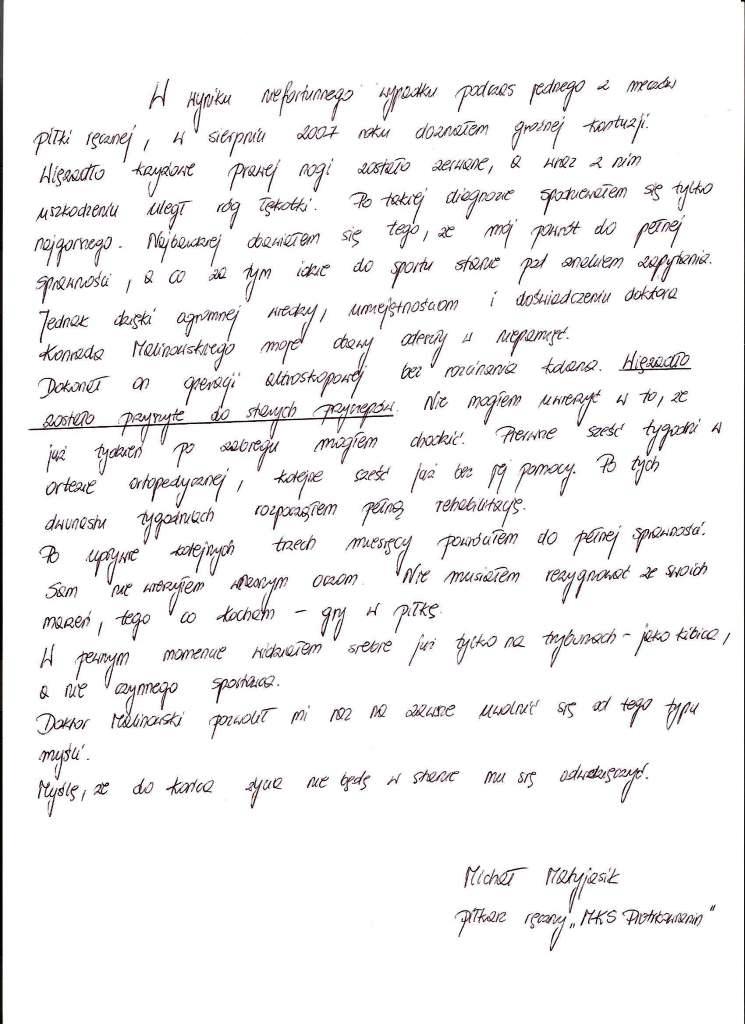 W wyniku niefortunnego wypadku podczas jednego z meczów
piłki ręcznej, w sierpniu 2007 roku doznałem groźnej kontuzji.
Więzadło krzyżowe prawej nogi zostało zerwane, a wraz z nim
uszkodzeniu uległ róg łękotki. Po takiej diagnozie spodziewałem się tylko
najgorszego. Najbardziej obawiałem się tego, że mój powrót do pełnej
sprawności, a co za tym idzie do sportu stanie pod znakiem zapytania.
Jednak dzięki ogromnej wiedzy, umiejętnościom i doświadczeniu doktora
Konrada Malinowskiego moje obawy odeszły w niepamięć.
Dokonał on operacji altroskopowej bez rozcinania kolana. Więzadło
zostało przyszyte do starych przyczepów. Nie mogłem uwierzyć w to, że
już tydzień po zabiegu mogłem chodzić. Pierwsze sześć tygodni w
ortezie ortopedycznej, kolejne sześć już bez jej pomocy. Po tych
dwunastu tygodniach rozpocząłem pełną rehabilitację.
Po upływie kolejnych trzech miesięcy powróciłem do pełnej sprawności.
Sam nie wierzyłem własnym oczom. Nie musiałem rezygnować ze swoich
marzeń, tego co kocham – gry w piłkę.
W pewnym momencie widziałem siebie już tylko na trybunach – jako kibica,
a nie czynnego sportowca.
Doktor Malinowski pozwolił mi raz na zawsze uwolnić się od tego typu
myśli.
Myślę, że do końca życia nie będę w stanie mu się odwdzięczyć.
Michał Matyjasik
piłkarz ręczny „MKS Piotrkowianin"